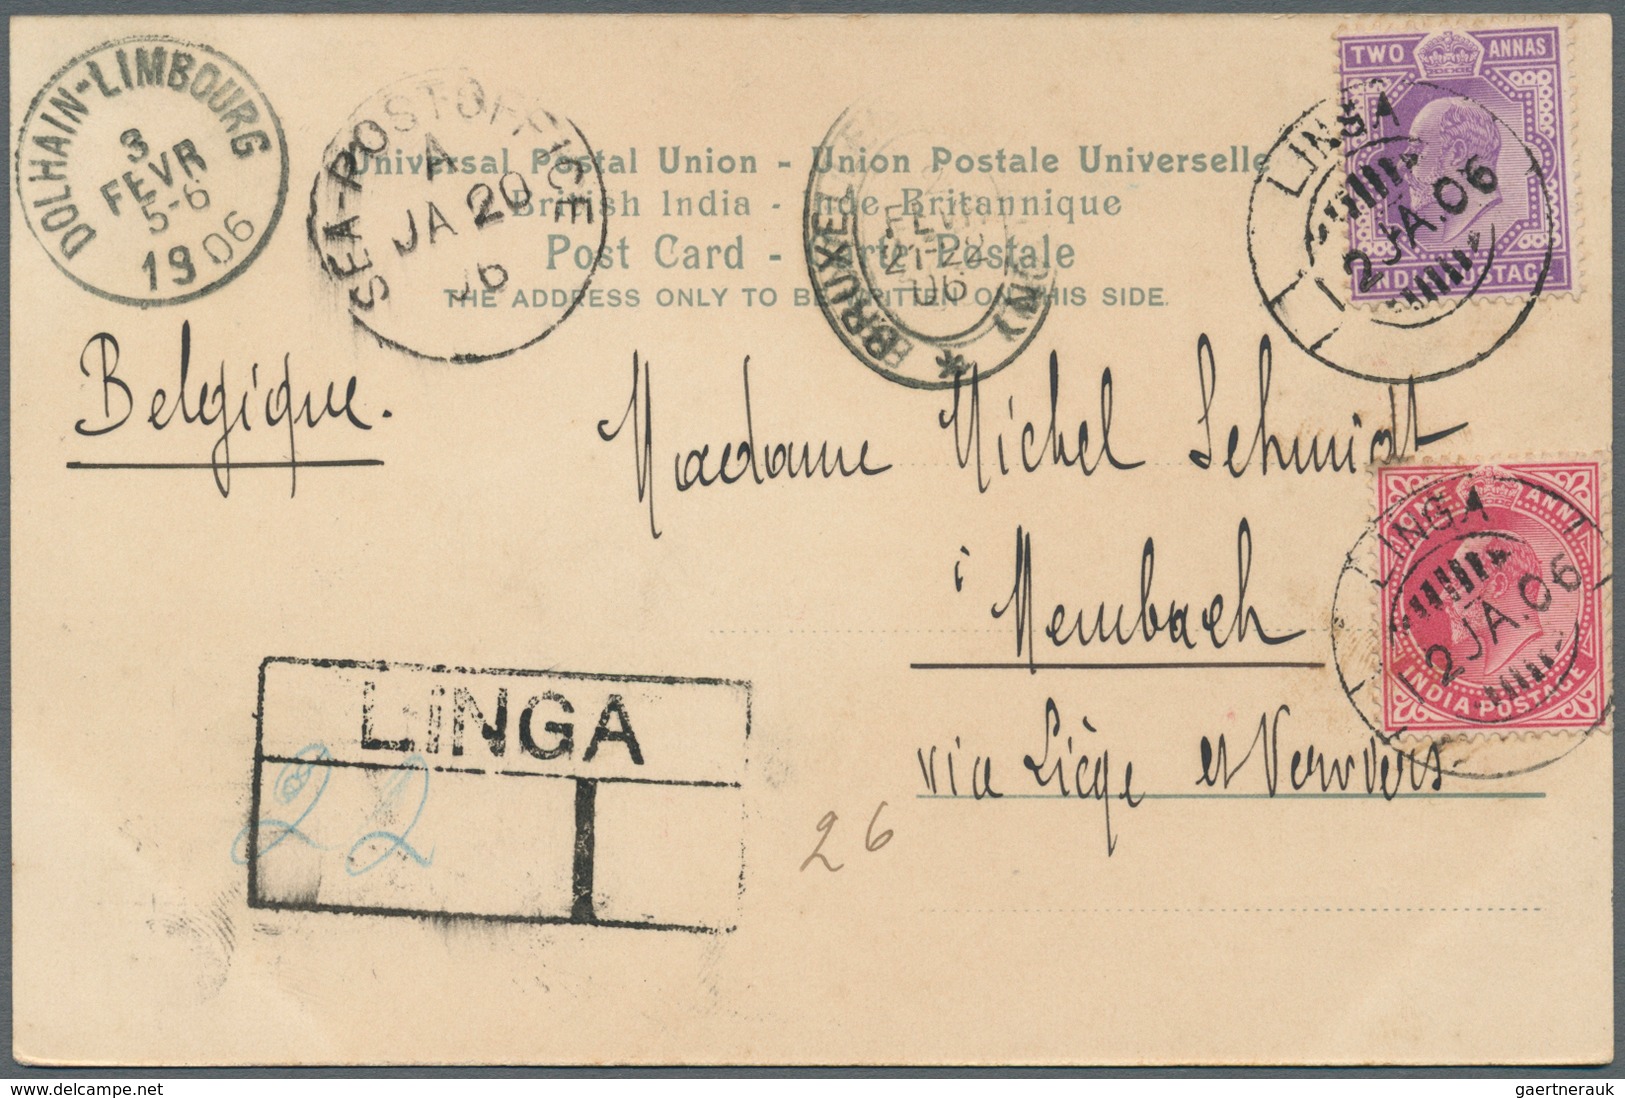 DOLHAIN-LIMBOURG
3
FEVR
5-6
1906
SEA-POST OFFICE
A
JA 20
06
BRUXEL
FEVR
21-22
06
TWO ANNAS
INDIA POSTAGE
LINGA
2 JA.06
Universal Postal Union - Union Postale Universelle
British India - Inde Britannique
Post Card - Carte Postale
THE ADDRESS ONLY TO BE WRITTEN ON THIS SIDE.
Belgique.
Madame Michel Schmidt
à
Membach
via Liège et Verviers
ONE ANNA
INDIA POSTAGE
LINGA
2 JA.06
LINGA
22
26
delcampe.net
gaertnerauk